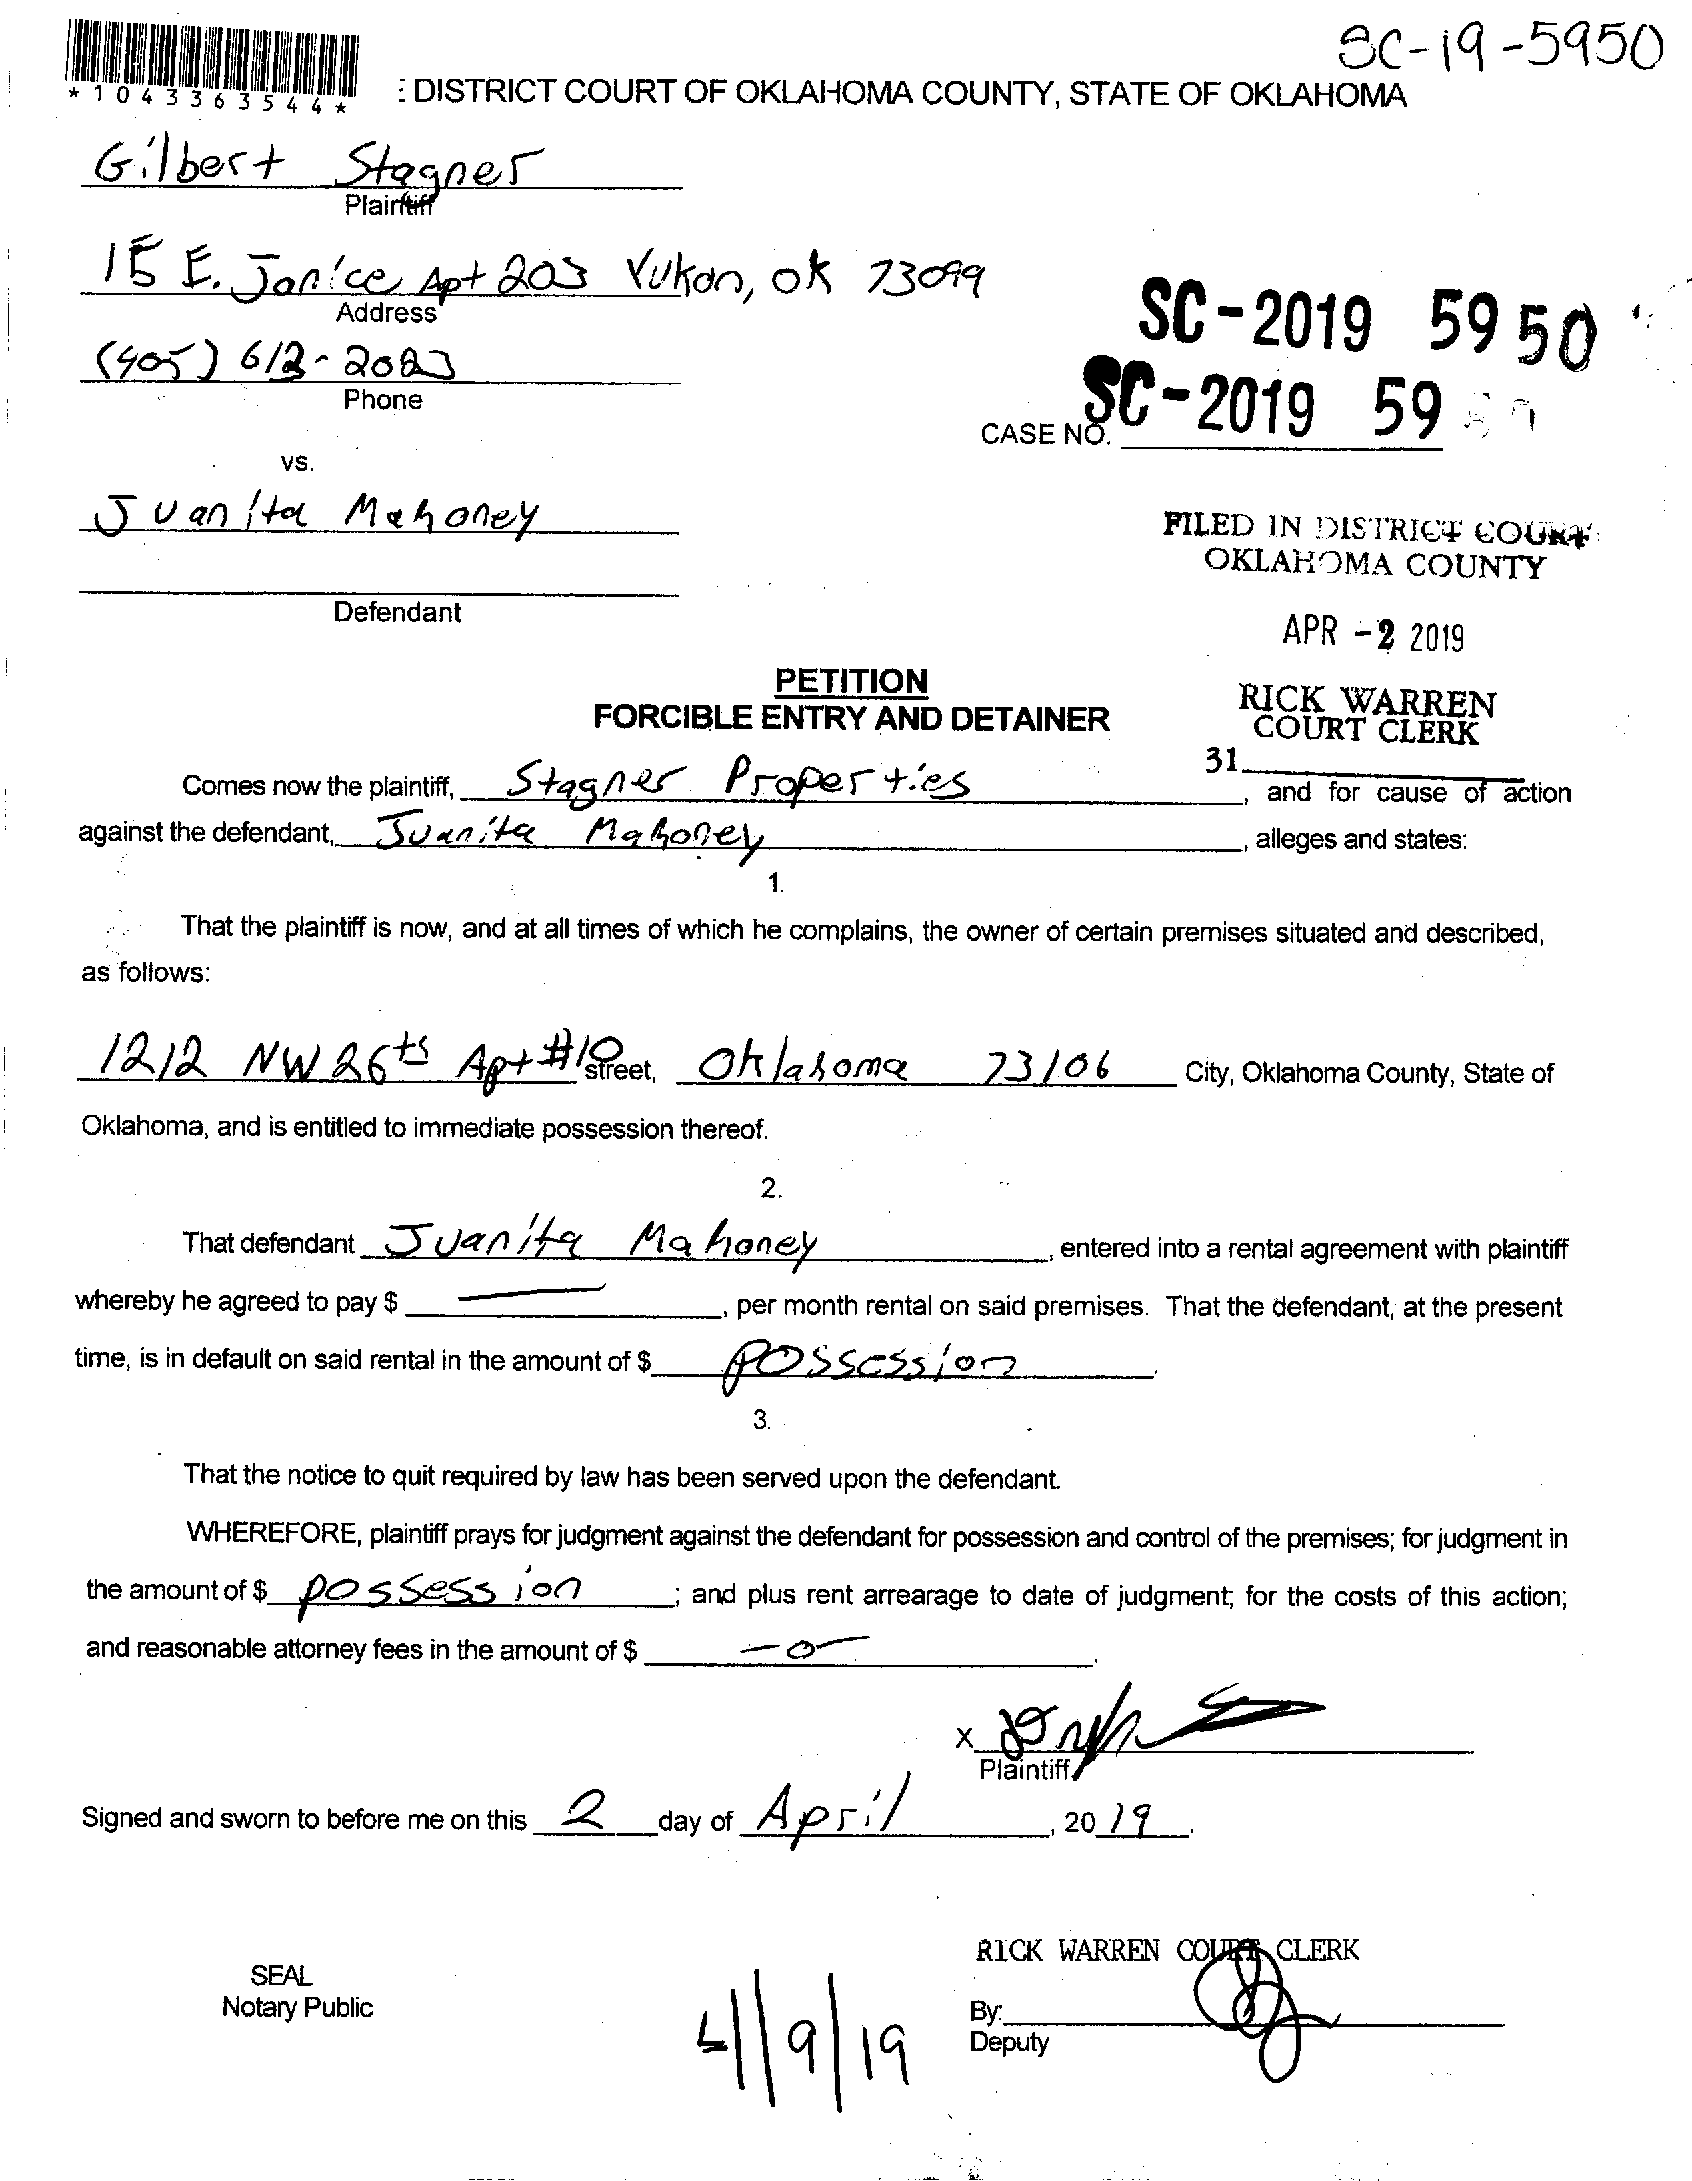 SC-19-5950
*1043363544*
: DISTRICT COURT OF OKLAHOMA COUNTY, STATE OF OKLAHOMA
Gilbert Stagner
Plaintiff
15 E. Janice Apt 203 Yukon, OK 73099
Address
SC-2019 5950
(405) 612-2023
Phone
SC-2019 59
CASE NO.
vs.
Juanita Mahoney
FILED IN DISTRICT COURT
OKLAHOMA COUNTY
Defendant
APR -2 2019
PETITION
FORCIBLE ENTRY AND DETAINER
RICK WARREN
COURT CLERK
31
Comes now the plaintiff, Stagner Properties, and for cause of action
against the defendant, Juanita Mahoney, alleges and states:
1.
That the plaintiff is now, and at all times of which he complains, the owner of certain premises situated and described,
as follows:
1212 NW 26th Apt #10 street, Oklahoma 73106 City, Oklahoma County, State of
Oklahoma, and is entitled to immediate possession thereof.
2.
That defendant Juanita Mahoney, entered into a rental agreement with plaintiff
whereby he agreed to pay $ —, per month rental on said premises. That the defendant, at the present
time, is in default on said rental in the amount of $ possession.
3.
That the notice to quit required by law has been served upon the defendant.
WHEREFORE, plaintiff prays for judgment against the defendant for possession and control of the premises; for judgment in
the amount of $ possession; and plus rent arrearage to date of judgment; for the costs of this action;
and reasonable attorney fees in the amount of $ -0-.
X
Plaintiff
Signed and sworn to before me on this 2 day of April, 2019.
RICK WARREN COURT CLERK
SEAL
Notary Public
By:
Deputy
4/9/19